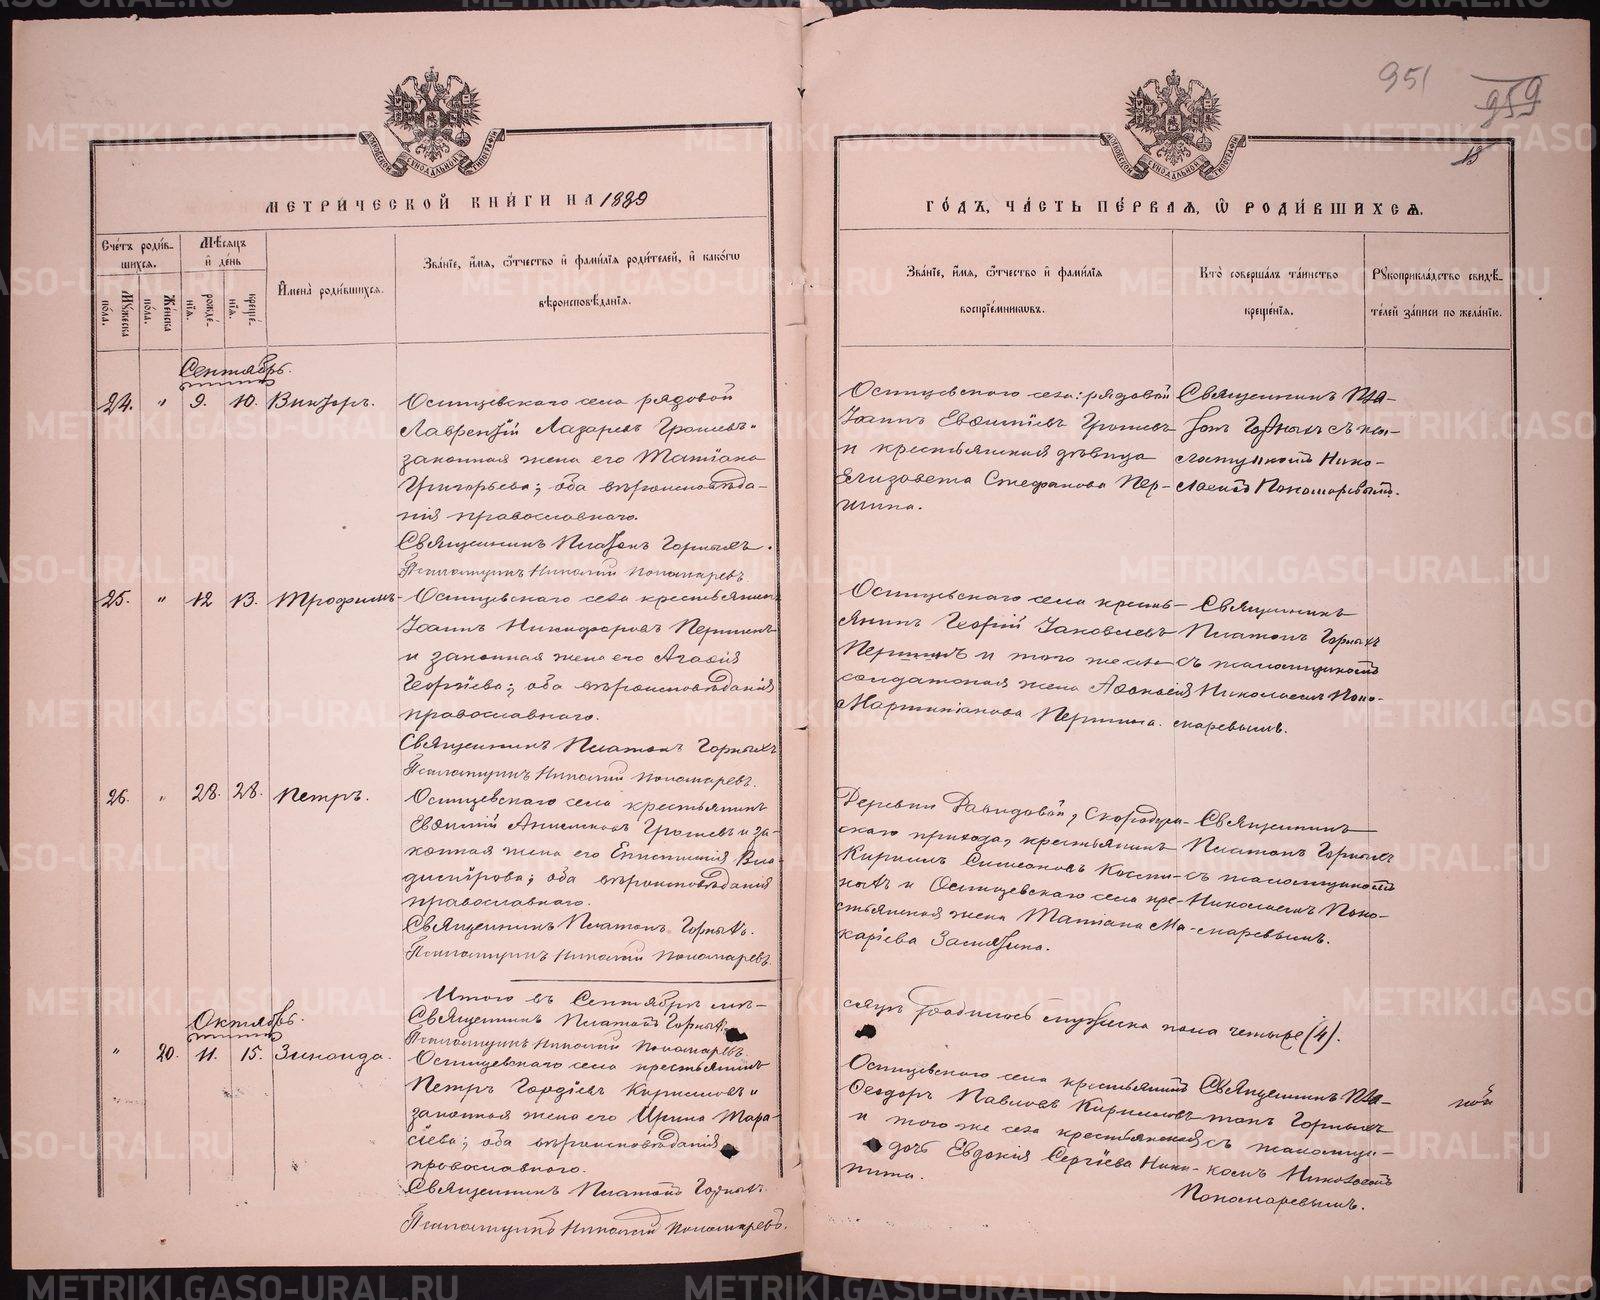 951
959
13
МОСКОВСКОЙ СѴНОДАЛЬНОЙ ТИПОГРАФІИ
МОСКОВСКОЙ СѴНОДАЛЬНОЙ ТИПОГРАФІИ
МЕТРИЧЕСКОЙ КНИГИ НА 1889
ГОДЪ, ЧАСТЬ ПЕРВАЯ, Ѡ РОДИВШИХСЯ.
Счетъ родив-
шихся.
Мѣсяцъ
и день
Мужеска пола.
Женска пола.
рожде-
нія.
креще-
нія.
Имена родившихся.
Званіе, имя, отчество и фамилія родителей, и какого
вѣроисповѣданія.
Званіе, имя, отчество и фамилія
воспріемниковъ.
Кто совершалъ таинство
крещенія.
Рукоприкладство свидѣ-
телей записи по желанію.
Сентябрь.
24. " 9. 10. Викторъ.
Осинцевскаго села рядовой
Лаврентій Лазаревъ Грошевъ и
законная жена его Татіана
Григорьева; оба вѣроисповѣда-
нія православнаго.
Священникъ Платонъ Горныхъ.
Псаломщикъ Николай Пономаревъ
Осинцевскаго села: рядовой
Іоаннъ Евѳиміевъ Грошевъ
и крестьянская дѣвица
Елизавета Стефанова Пер-
шина.
Священникъ Пла-
тонъ Горныхъ съ пса-
ломщикомъ Нико-
лаемъ Пономаревымъ.
25. " 12 13. Трофимъ.
Осинцевскаго села крестьянинъ
Іоаннъ Никифоровъ Першинъ
и законная жена его Агаѳія
Георгіева; оба вѣроисповѣданія
православнаго.
Священникъ Платонъ Горныхъ
Псаломщикъ Николай Пономаревъ.
Осинцевскаго села кресть-
янинъ Георгій Іаковлевъ
Першинъ и того же села
солдатская жена Аѳанасія
Мартиніанова Першина.
Священникъ
Платонъ Горныхъ
съ псаломщикомъ
Николаемъ Поно-
маревымъ.
26. " 28. 28. Петръ.
Осинцевскаго села крестьянинъ
Евѳимій Анисимовъ Грошевъ и за-
конная жена его Епистимія Вла-
димірова; оба вѣроисповѣданія
православнаго.
Священникъ Платонъ Горныхъ.
Псаломщикъ Николай Пономаревъ.
Деревни Давидовой, Скородум-
скаго прихода, крестьянинъ
Кириллъ Симеоновъ Кости-
ныхъ и Осинцевскаго села кре-
стьянская жена Татіана Ма-
каріева Замятина.
Священникъ
Платонъ Горныхъ
съ псаломщикомъ
Николаемъ Поно-
маревымъ.
Итого въ Сентябрѣ мѣ-
сяцѣ родилось мужеска пола четыре (4).
Священникъ Платонъ Горныхъ
Псаломщикъ Николай Пономаревъ.
Октябрь.
" 20. 11. 15. Зинаида.
Осинцевскаго села крестьянинъ
Петръ Гордіевъ Кирилловъ и
законная жена его Ирина Тара-
сіева; оба вѣроисповѣданія
православнаго.
Священникъ Платонъ Горныхъ.
Псаломщикъ Николай Пономаревъ.
Осинцевскаго села крестьянинъ
Ѳеодоръ Павловъ Кирилловъ
и того же села крестьянская
дочь Евдокія Сергіева Ники-
тина.
Священникъ Пла-
тонъ Горныхъ
съ псаломщи-
комъ Николаемъ
Пономаревымъ.
METRIKI.GASO-URAL.RU